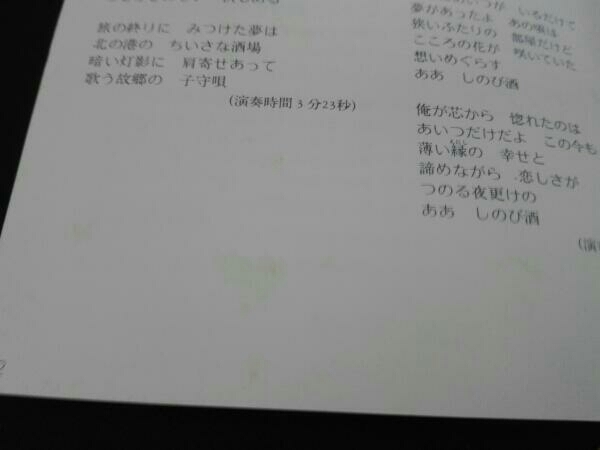 旅の終りに　みつけた夢は
北の港の　ちいさな酒場
暗い灯影に　肩寄せあって
歌う故郷の　子守唄
(演奏時間 3 分23秒)
いるだけで
夢があったよ　あの頃は
狭いふたりの　部屋だけど
こころの花が　咲いていた
想いめぐらす
ああ　しのび酒
俺が芯から　惚れたのは
あいつだけだよ　この今も
薄い縁の　幸せと
諦めながら　恋しさが
つのる夜更けの
ああ　しのび酒